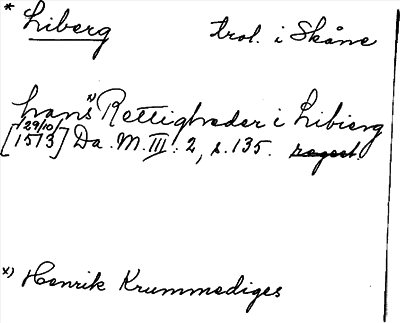 * Liberg trol. i Skåne
hans x) Rettigheder i Libierg
[29/10 1513] Da. M. III: 2, s. 135. regest.
x) Henrik Krummediges